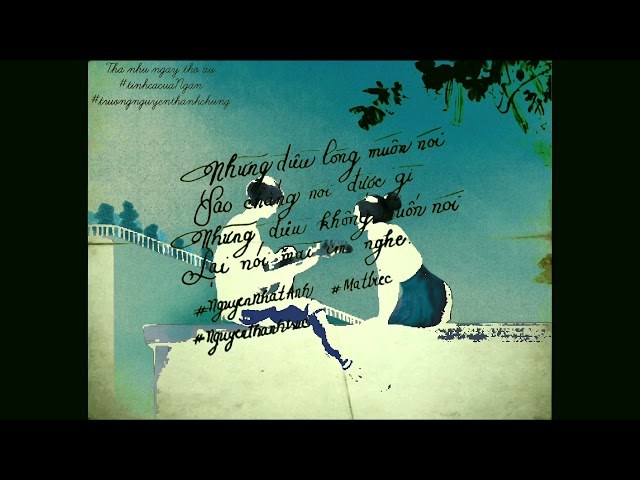 Tha nhu ngay tho au
#tinhcacuaNgan
#truongnguyenthanhchung
Những điều lòng muốn nói
Sao chẳng nói được gì
Những điều không muốn nói
Lại nói mãi em nghe
#NguyenNhatAnh #Matbiec
#Nguyenthanh